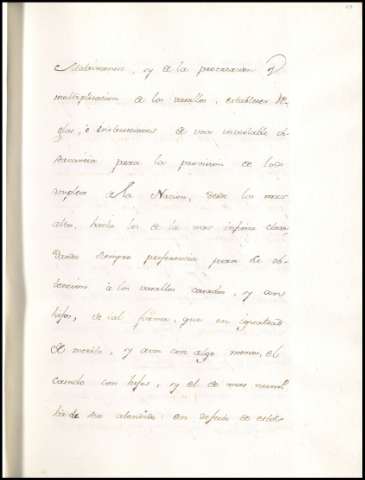 Matrimonios, y de la procreacion y
multiplicacion de los vasallos, establecer Re-
glas, ò Instrucciones de una inviolable ob-
servancia para la provision de los
empleos de la Nacion, desde los mas
altos, hasta los de la mas infima clase
dando siempre preferencia para
à los vasallos casados, y con
hijos, de tal forma, que en igualdad
de merito, y aun con algo menos, el
casado con hijos, y el de mas numº
ha de ser atendido: en defecto de estos